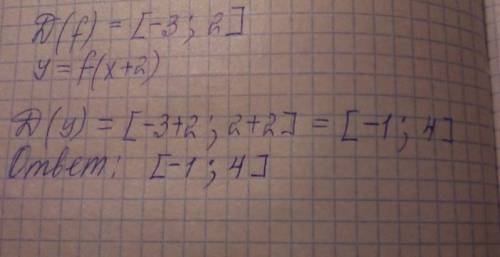 D(f) = [-3; 2]
y = f(x+2)
D(y) = [-3+2; 2+2] = [-1; 4]
Ответ: [-1; 4]